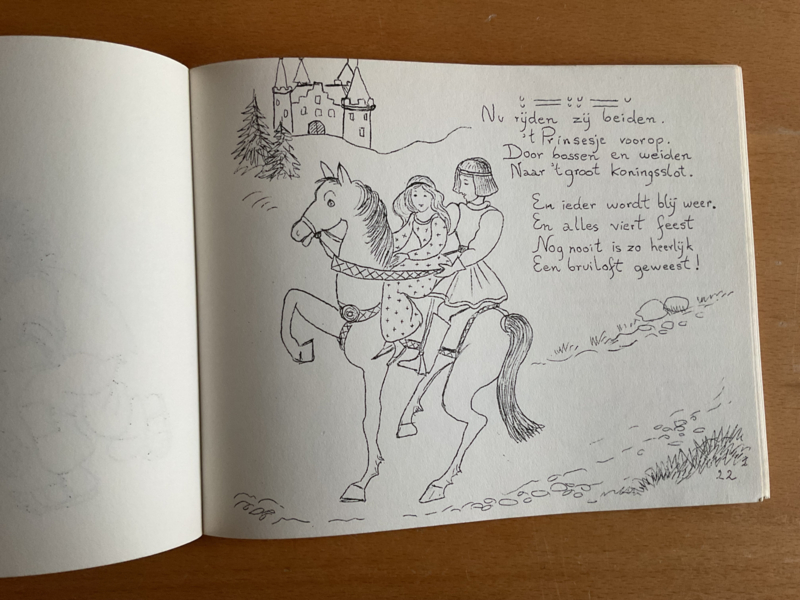 Nu rijden zij beiden.
't Prinsesje voorop.
Door bossen en weiden
Naar 't groot koningsslot.
En ieder wordt blij weer.
En alles viert feest
Nog nooit is zo heerlijk
Een bruiloft geweest!
22